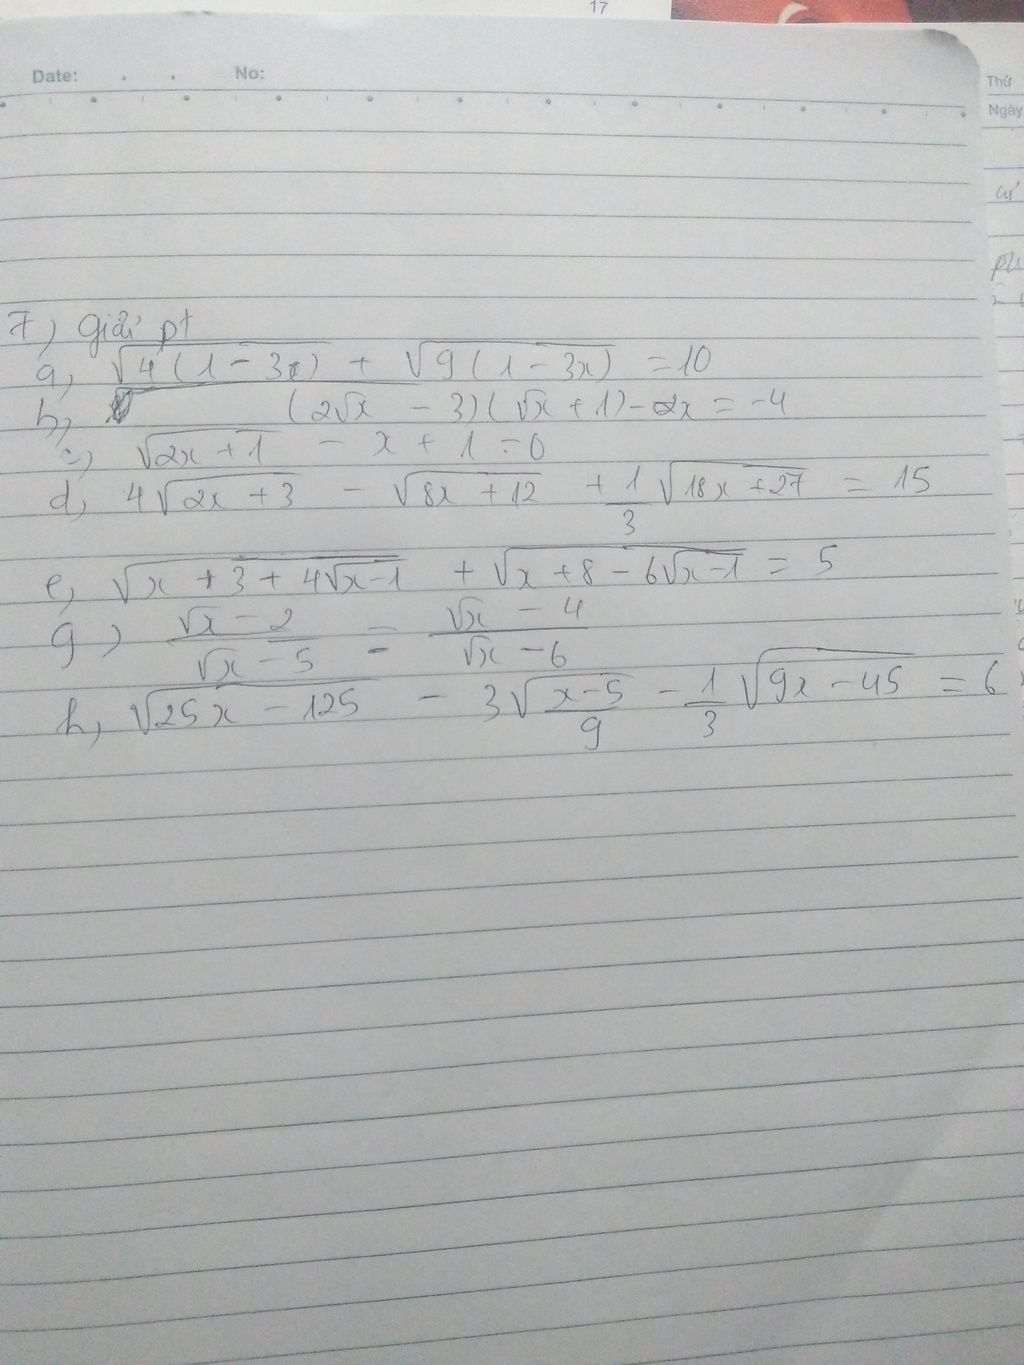 17
Date: . . No:
Thứ
Ngày
7) Giải pt
a, √4(1-3x) + √9(1-3x) = 10
b, (2√x - 3)(√x + 1) - 2x = -4
c, √2x+1 - x + 1 = 0
d, 4√2x+3 - √8x+12 + 1/3 √18x+27 = 15
e, √x+3+4√x-1 + √x+8-6√x-1 = 5
g) √x-2 / √x-5 = √x-4 / √x-6
h, √25x-125 - 3√x-5/9 - 1/3 √9x-45 = 6